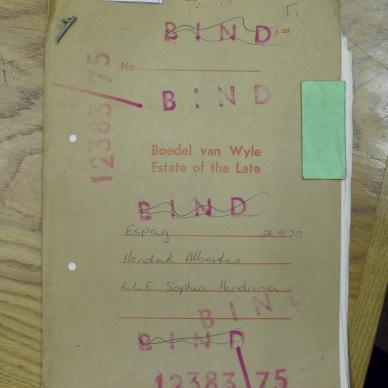 BIND
No.
12383/75
BIND
Boedel van Wyle
Estate of the Late
BIND
Espag 26.9.75
Hendrik Albertus
Sophia Hendrina
BIND
BIND
12383/75